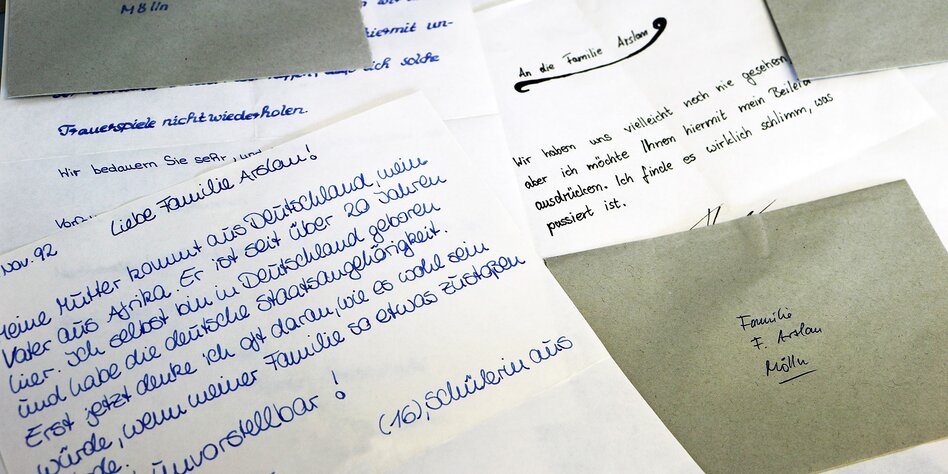 Mölln
hiermit un-
daß sich solche
Trauerspiele nicht wiederholen.
Wir bedauern Sie sehr, und
An die Familie Arslan
Wir haben uns vielleicht noch nie gesehen,
aber ich möchte Ihnen hiermit mein Beileid
ausdrücken. Ich finde es wirklich schlimm, was
passiert ist.
Nov. 92
Liebe Familie Arslan!
Meine Mutter kommt aus Deutschland, mein
Vater aus Afrika. Er ist seit über 20 Jahren
hier. Ich selbst bin in Deutschland geboren
und habe die deutsche Staatsangehörigkeit.
Erst jetzt denke ich oft daran, wie es wohl sein
würde, wenn meiner Familie so etwas zustoßen
unvorstellbar!
(16), Schülerin aus
Familie
F. Arslan
Mölln